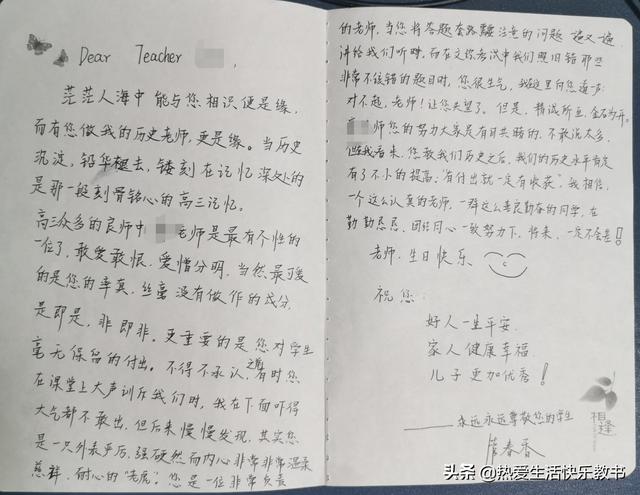 Dear Teacher
茫茫人海中能与您相识便是缘,
而有您做我的历史老师,更是缘。当历史
沉淀,铅华褪去,镂刻在记忆深处的
是那一段刻骨铭心的高三记忆。
高三众多的良师中 老师是最有个性的
一位了,敢爱敢恨,爱憎分明,当然最可爱
的是您的率真,丝毫没有做作的成分,
是即是,非即非。更重要的是您对学生
毫无保留的付出。不得不承认,之前有时您
在课堂上大声训斥我们时,我在下面吓得
大气都不敢出,但后来慢慢发现,其实您
是一只外表严厉,强硬然而内心非常非常温柔
慈祥,耐心的“老虎”。您是一位非常负责
的老师,当您将答题套路 注意的问题一遍又一遍
讲给我们听时,而在文综考试中我们照旧错那些
非常不该错的题目时,您很生气,我这里向您道一声:
对不起,老师!让您失望了。但是,精诚所至,金石为开。
师您的努力大家是有目共睹的,不敢说太多,
但我看来,您教我们历史之后,我们的历史水平肯定
有了不小的提高,“有付出就一定有收获”,我相信,
一个这么认真的老师,一群这么善良勤奋的同学,在
勤勤恳恳,团结同心一致努力下,将来,一定不会差!
老师,生日快乐
祝您:
好人一生平安
家人健康幸福
儿子更加优秀!
永远永远尊敬您的学生
春香
相逢
头条 @热爱生活快乐教书